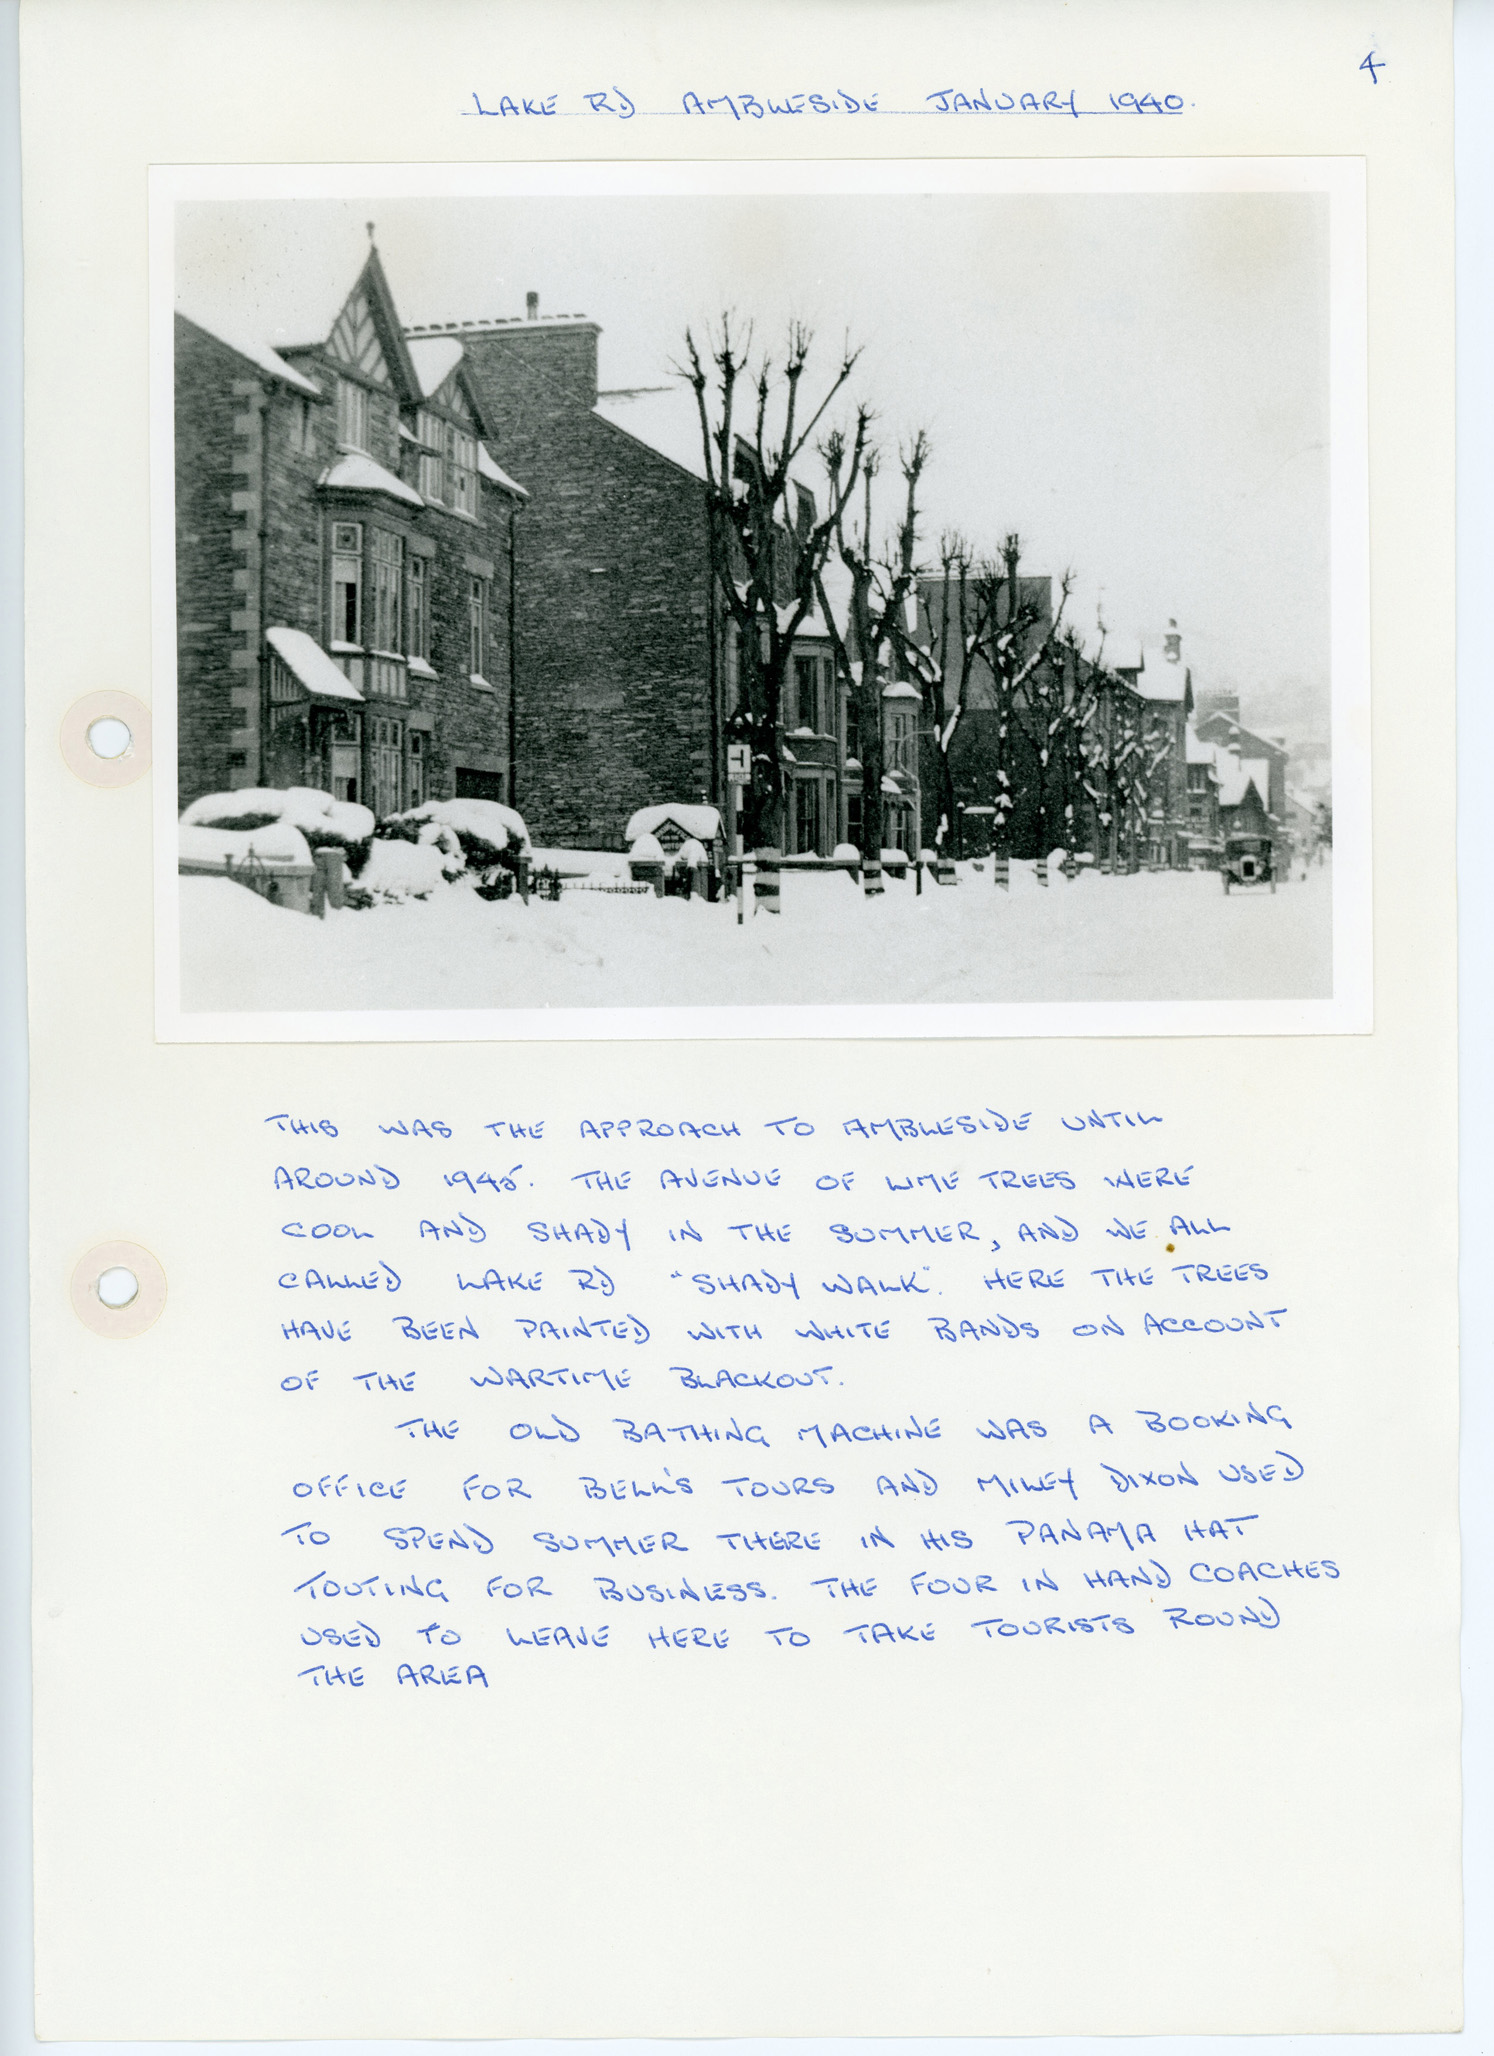 4
LAKE RD AMBLESIDE JANUARY 1940.
THIS WAS THE APPROACH TO AMBLESIDE UNTIL
AROUND 1945. THE AVENUE OF LIME TREES WERE
COOL AND SHADY IN THE SUMMER, AND WE ALL
CALLED LAKE RD "SHADY WALK". HERE THE TREES
HAVE BEEN PAINTED WITH WHITE BANDS ON ACCOUNT
OF THE WARTIME BLACKOUT.
THE OLD BATHING MACHINE WAS A BOOKING
OFFICE FOR BELL'S TOURS AND MILEY DIXON USED
TO SPEND SUMMER THERE IN HIS PANAMA HAT
TOUTING FOR BUSINESS. THE FOUR IN HAND COACHES
USED TO LEAVE HERE TO TAKE TOURISTS ROUND
THE AREA